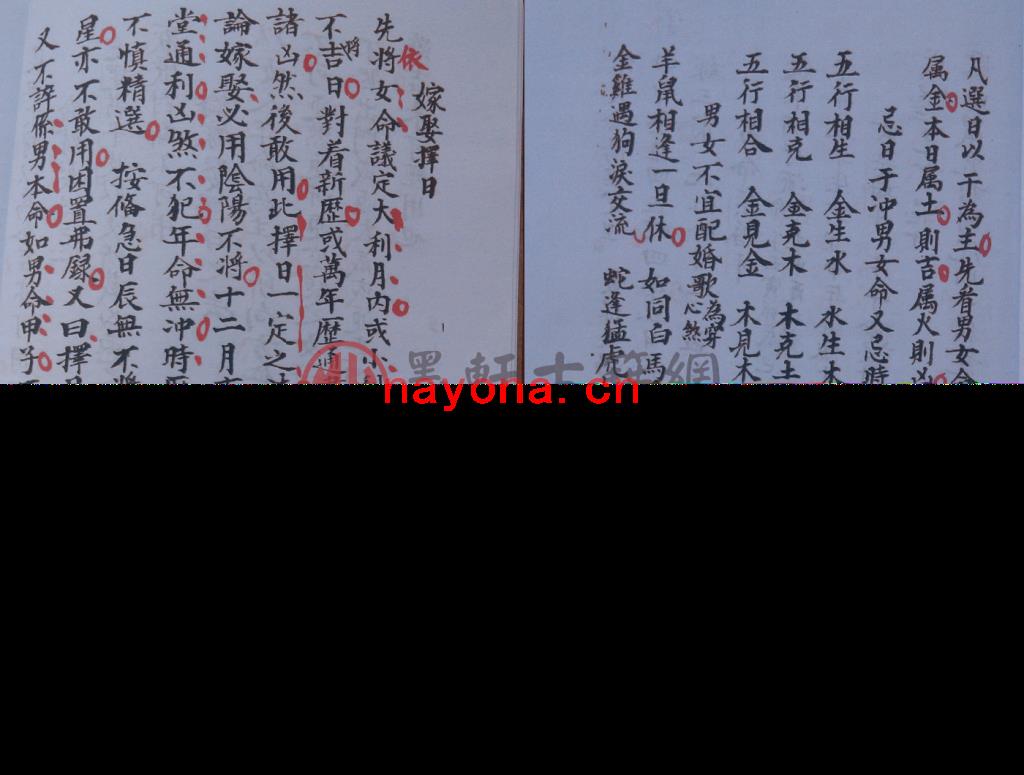 凡選日以干為主先看男女命
属金本日属土則吉属火則凶
忌日干冲男女命又忌時
五行相生 金生水 水生木
五行相克 金克木 木克土
五行相合 金見金 木見木
男女不宜配婚歌 為穿心煞
羊鼠相逢一旦休 如同白馬
金雞遇狗淚交流 蛇逢猛虎
嫁娶擇日
先將依女命議定大利月内或小利
不將吉日對着新歷或萬年歷通
諸凶然後敢用此擇日一定之法
論嫁娶必用陰陽不將十二月
堂通利凶煞不犯年命無冲時
不慎精選 按偹急日辰無不將
星亦不敢用因置弗録又曰擇
又不許係男本命如男命甲子
墨軒古籍網
nayona.cn